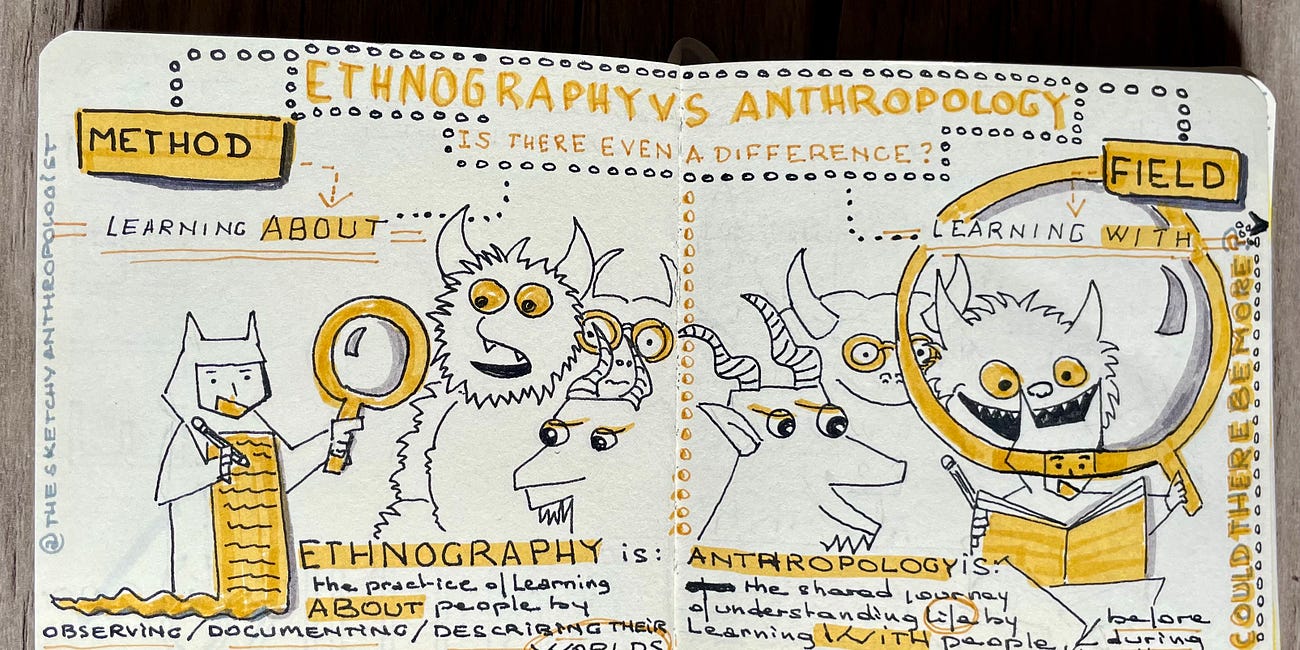 ETHNOGRAPHY VS ANTHROPOLOGY
IS THERE EVEN A DIFFERENCE?
METHOD
LEARNING ABOUT
FIELD
LEARNING WITH
@THE SKETCHY ANTHROPOLOGIST
COULD THERE BE MORE?
ETHNOGRAPHY is:
the practice of Learning
ABOUT people by
OBSERVING/DOCUMENTING/DESCRIBING THEIR
WORLDS
ANTHROPOLOGY is:
the shared journey
of understanding life by
Learning WITH people,
before
during